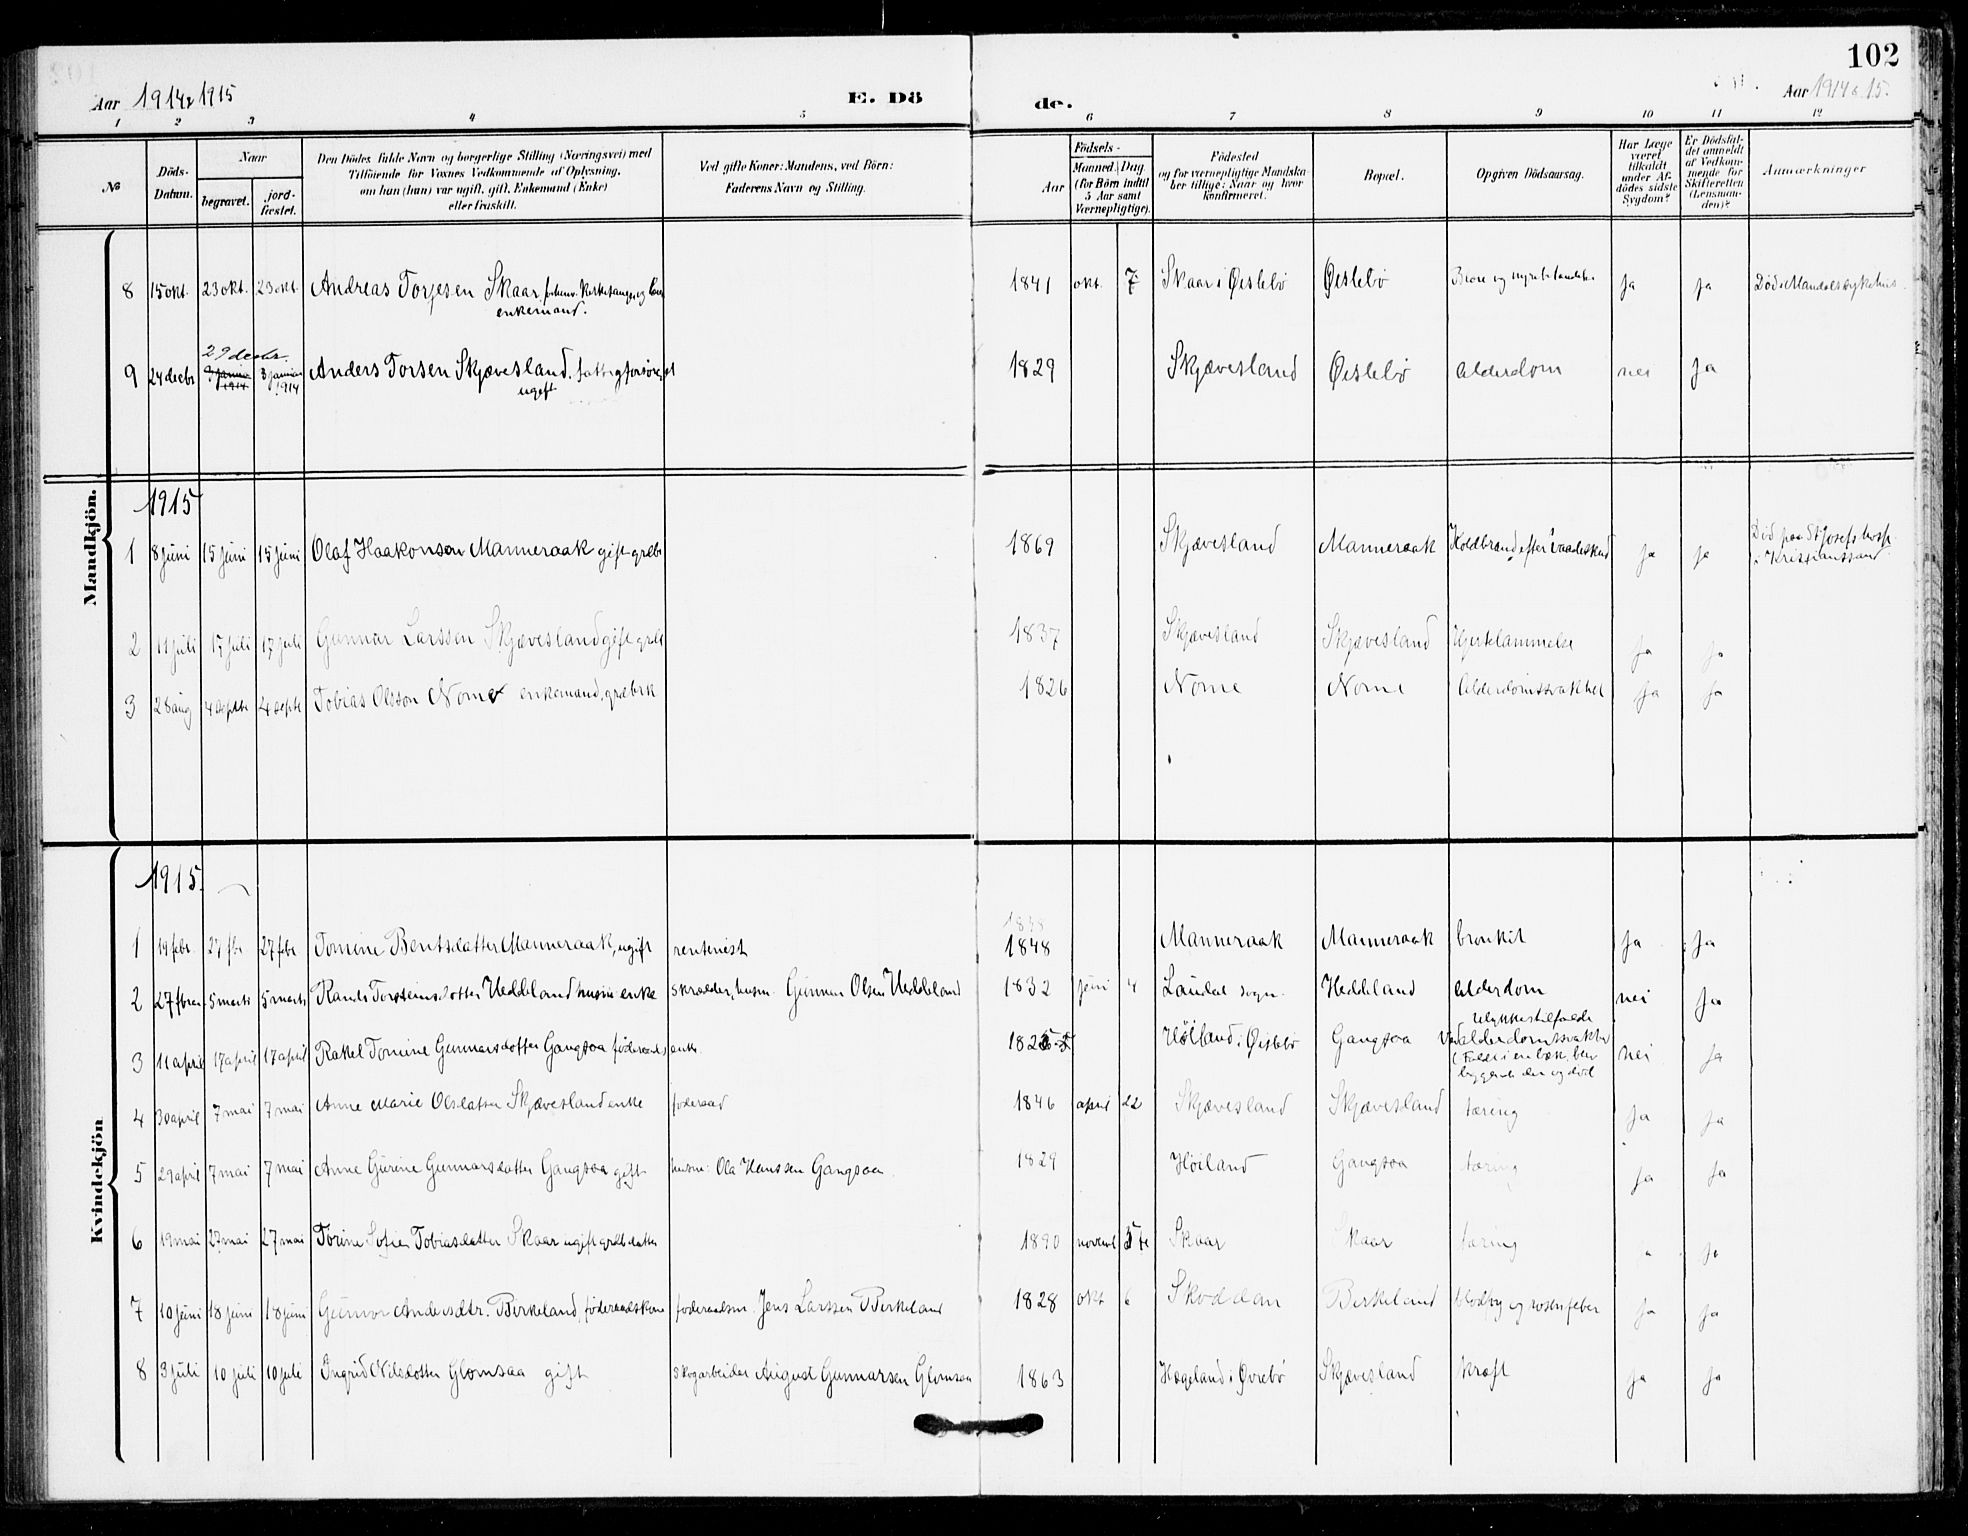 102
Aar 1914 & 1915 E. Dö de. Aar 1914 & 15.
1 2 3 4 5 6 7 8 9 10 11 12
№ Döds-Datum. Naar begravet. jordfæstet. Den Dödes fulde Navn og borgerlige Stilling (Næringsvei) med Tilföiende for Voxnes Vedkommende af Oplysning, om han (hun) var ugift, gift, Enkemand (Enke) eller fraskilt. Ved gifte Koner: Mandens, ved Börn: Faderens Navn og Stilling. Födsels- Aar Maaned. Dag. (for Börn indtil 5 Aar samt Værnepligtige). Födested og for værnepligtige Mandskaber tillige: Naar og hvor konfirmeret. Bopæl. Opgiven Dödsaarsag. Har Læge været tilkaldt under Afdödes sidste Sygdom? Er Dödsfaldet anmeldt af Vedkommende for Skifteretten (Lensmanden)? Anmærkninger
Mandkjön.
8 15 okt. 23 okt. 23 okt. Andreas Torjesen Skaar, kirkesanger og enkemand. 1841 okt. 7 Skaar i Øislebø Øislebø ja ja Død i Mandals sykehus.
29 decbr.
9 24 decbr 3 januar 1914 3 januar 1914 Anders Torsen Skjævesland. fattigforsørget ugift 1829 Skjævesland Øislebø Alderdom nei ja
1915
1 8 juni 15 juni 15 juni Olaf Haakonson Manneraak gift grdbr 1869 Skjævesland Manneraak Koldbrand efter vaadeskud ja ja Død paa St Josefs hosp. i Kristianssand
2 11 juli 17 juli 17 juli Gunnar Larssen Skjævesland gift grdb 1837 Skjævesland Skjævesland Hjertelammelse ja ja
3 28 aug 4 septbr 4 septbr Tobias Olsson Nome enkemand, grdbrk 1826 Nome Nome Alderdomssvakhet ja ja
Kvindekjön
1915.
1848
1 19 febr. 27 fbr 27 febr Tomine Bentsdatter Manneraak, ugift rentenist 1848 Manneraak Manneraak bronkit ja ja
2 27 fbrar 5 marts 5 marts Randi Torsteinsdatter Heddeland husm enke skrædder, husm. Gunnar Olsen Heddeland 1832 juni 4 Laudal sogn. Heddeland Alderdom nei ja
3 11 april 17 april 17 april Rakel Tomine Gunnarsdatter Gangsaa føderaads enke. 1825 Høiland i Øislebø Gangsaa Ulykkestilfælde Alderdomssvakhet (Faldt i en bæk, blev liggende der og død nei ja
4 30 april 7 mai 7 mai Anne Marie Olsdatter Skjævesland enke føderaad 1846 april 22 Skjævesland Skjævesland tæring ja ja
5 29 april 7 mai 7 mai Anne Gurine Gunnarsdatter Gangsaa gift husm: Ola Hanssen Gangsaa. 1829 Høiland Gangsaa tæring ja ja
6 19 mai 27 mai 27 mai Torine Sofie Tobiasdatter Skaar ugift grdb datter 1890 novemb 5 Skaar Skaar tæring " ja
7 10 juni 18 juni 18 juni Gunvor Andersdtr. Birkeland, føderaadskone føderaadsm. Jens Larssen Birkeland 1828 okt 6 Skoddan Birkeland blodpr og rosenfeber ja ja
8 3 juli 10 juli 10 juli Ingrid Nilsdatter Glomsaa gift skogarbeider August Gunnarsen Glomsaa 1863 Hægeland i Øvrebø Skjævesland kræft ja ja